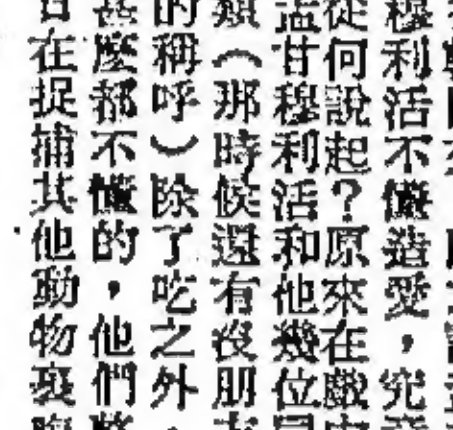 穆利活不懂造愛，究
從何說起？原來在戲中
孟甘穆利活和他幾位同
類（那時候還有沒朋友
的稱呼）除了吃之外，
甚麼都不懂的，他們整
日在捉捕其他動物裹腹